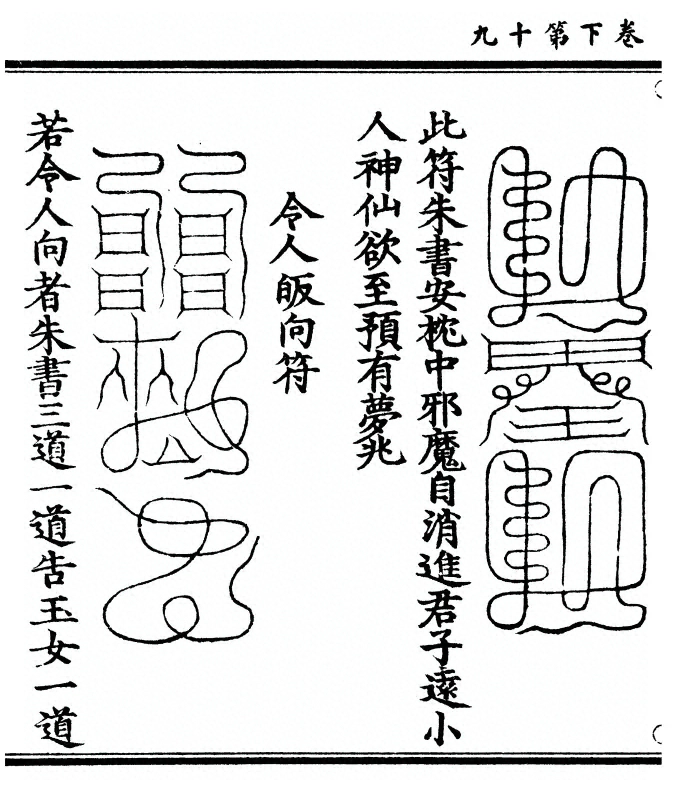 卷下第十九
此符朱書安枕中邪魔自消進君子遠小
人神仙欲至預有夢兆
令人皈向符
若令人向者朱書三道一道告玉女一道